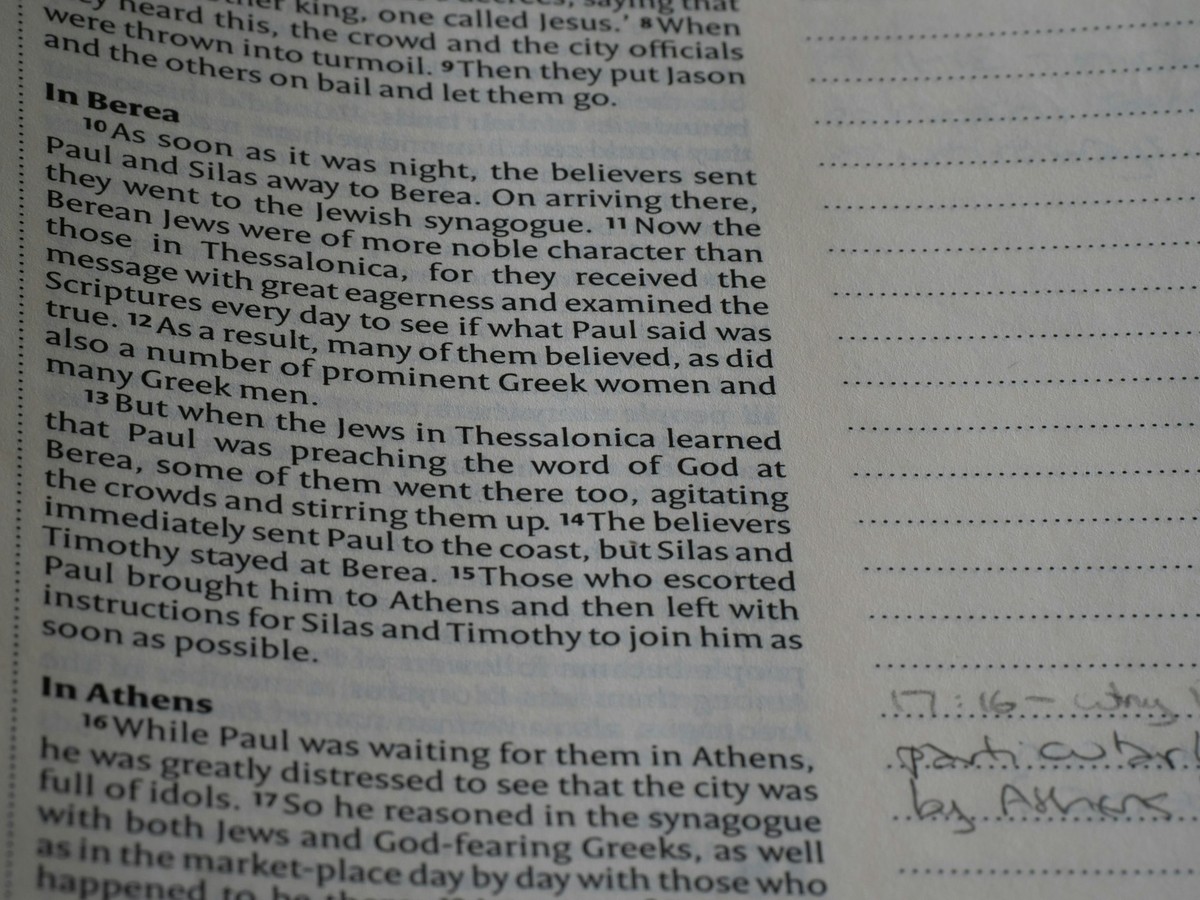 king, one called Jesus.' 8 When
heard this, the crowd and the city officials
were thrown into turmoil. 9 Then they put Jason
and the others on bail and let them go.
In Berea
10 As soon as it was night, the believers sent
Paul and Silas away to Berea. On arriving there,
they went to the Jewish synagogue. 11 Now the
Berean Jews were of more noble character than
those in Thessalonica, for they received the
message with great eagerness and examined the
Scriptures every day to see if what Paul said was
true. 12 As a result, many of them believed, as did
also a number of prominent Greek women and
many Greek men.
13 But when the Jews in Thessalonica learned
that Paul was preaching the word of God at
Berea, some of them went there too, agitating
the crowds and stirring them up. 14 The believers
immediately sent Paul to the coast, but Silas and
Timothy stayed at Berea. 15 Those who escorted
Paul brought him to Athens and then left with
instructions for Silas and Timothy to join him as
soon as possible.
In Athens
16 While Paul was waiting for them in Athens,
he was greatly distressed to see that the city was
full of idols. 17 So he reasoned in the synagogue
with both Jews and God-fearing Greeks, as well
as in the market-place day by day with those who
happened to be
17:16 - why
particularl
by Athens